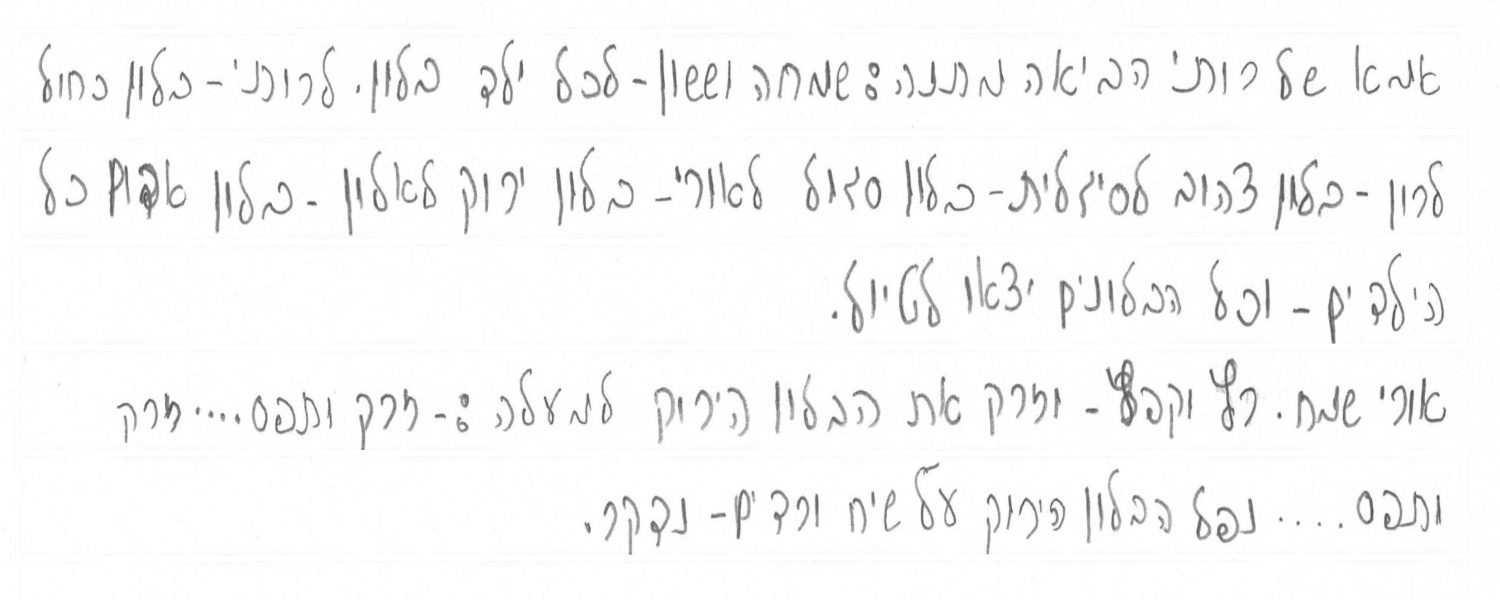 אמא של רותי הביאה מתנה: שמחה וששון - לכל ילד בלון. לרותי - בלון כחול
לרון - בלון צהוב לסיגלית - בלון סגול לאורי - בלון ירוק לאלון - בלון אדום כל
הילדים - וכל הבלונים יצאו לטיול.
אורי שמח. רץ וקפץ - וזרק את הבלון הירוק למעלה :- זרק ותפס.... זרק
ותפס .... נפל הבלון הירוק על שיח ורדים - נדקר.